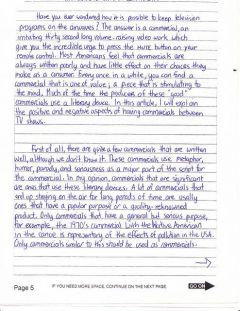 Have you ever wondered how it is possible to keep television
programs on the airwaves? The answer is a commercial, an
irritating thirty second long volume-raising video work which
give you the incredible urge to press the mute button on your
remote control. Most Americans feel that commercials are
always written poorly and have little effect in their choices they
make as a consumer. Every once in a while, you can find a
commercial that is one of value; a piece that is stimulating to
the mind. Much of the time the producers of these "good"
commercials use a literary device. In this article, I will expl on
the positive and negative aspects of having commercials between
TV shows.
First of all, there are quite a few commercials that are written
well, although we don't know it. These commercials use metaphor,
humor, parody, and seriousness as a major part of the script for
the commercial. In my opinion, commercials that are significant
are ones that use these literary devices. A lot of commercials that
end up staying on the air for long periods of time are usually
ones that have a popular purpose or a quality-renowned
product. Only commercials that have a general but serious purpose,
for example, the 1970's commercial with the Native American
in the canoe is representing of the effects of pollution in the USA.
Only commercials similar to this should be used as commercials.
Page 5
IF YOU NEED MORE SPACE, CONTINUE ON THE NEXT PAGE.
GO ON